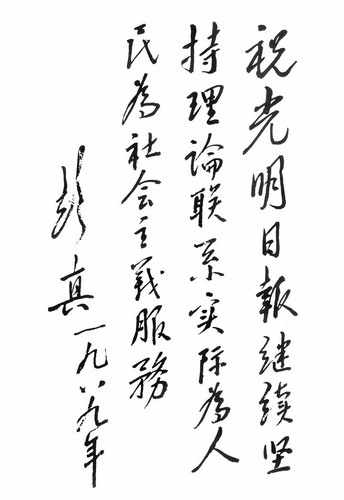 祝光明日報继续坚
持理論联系实际為人
民為社会主義服務
彭真一九八九年